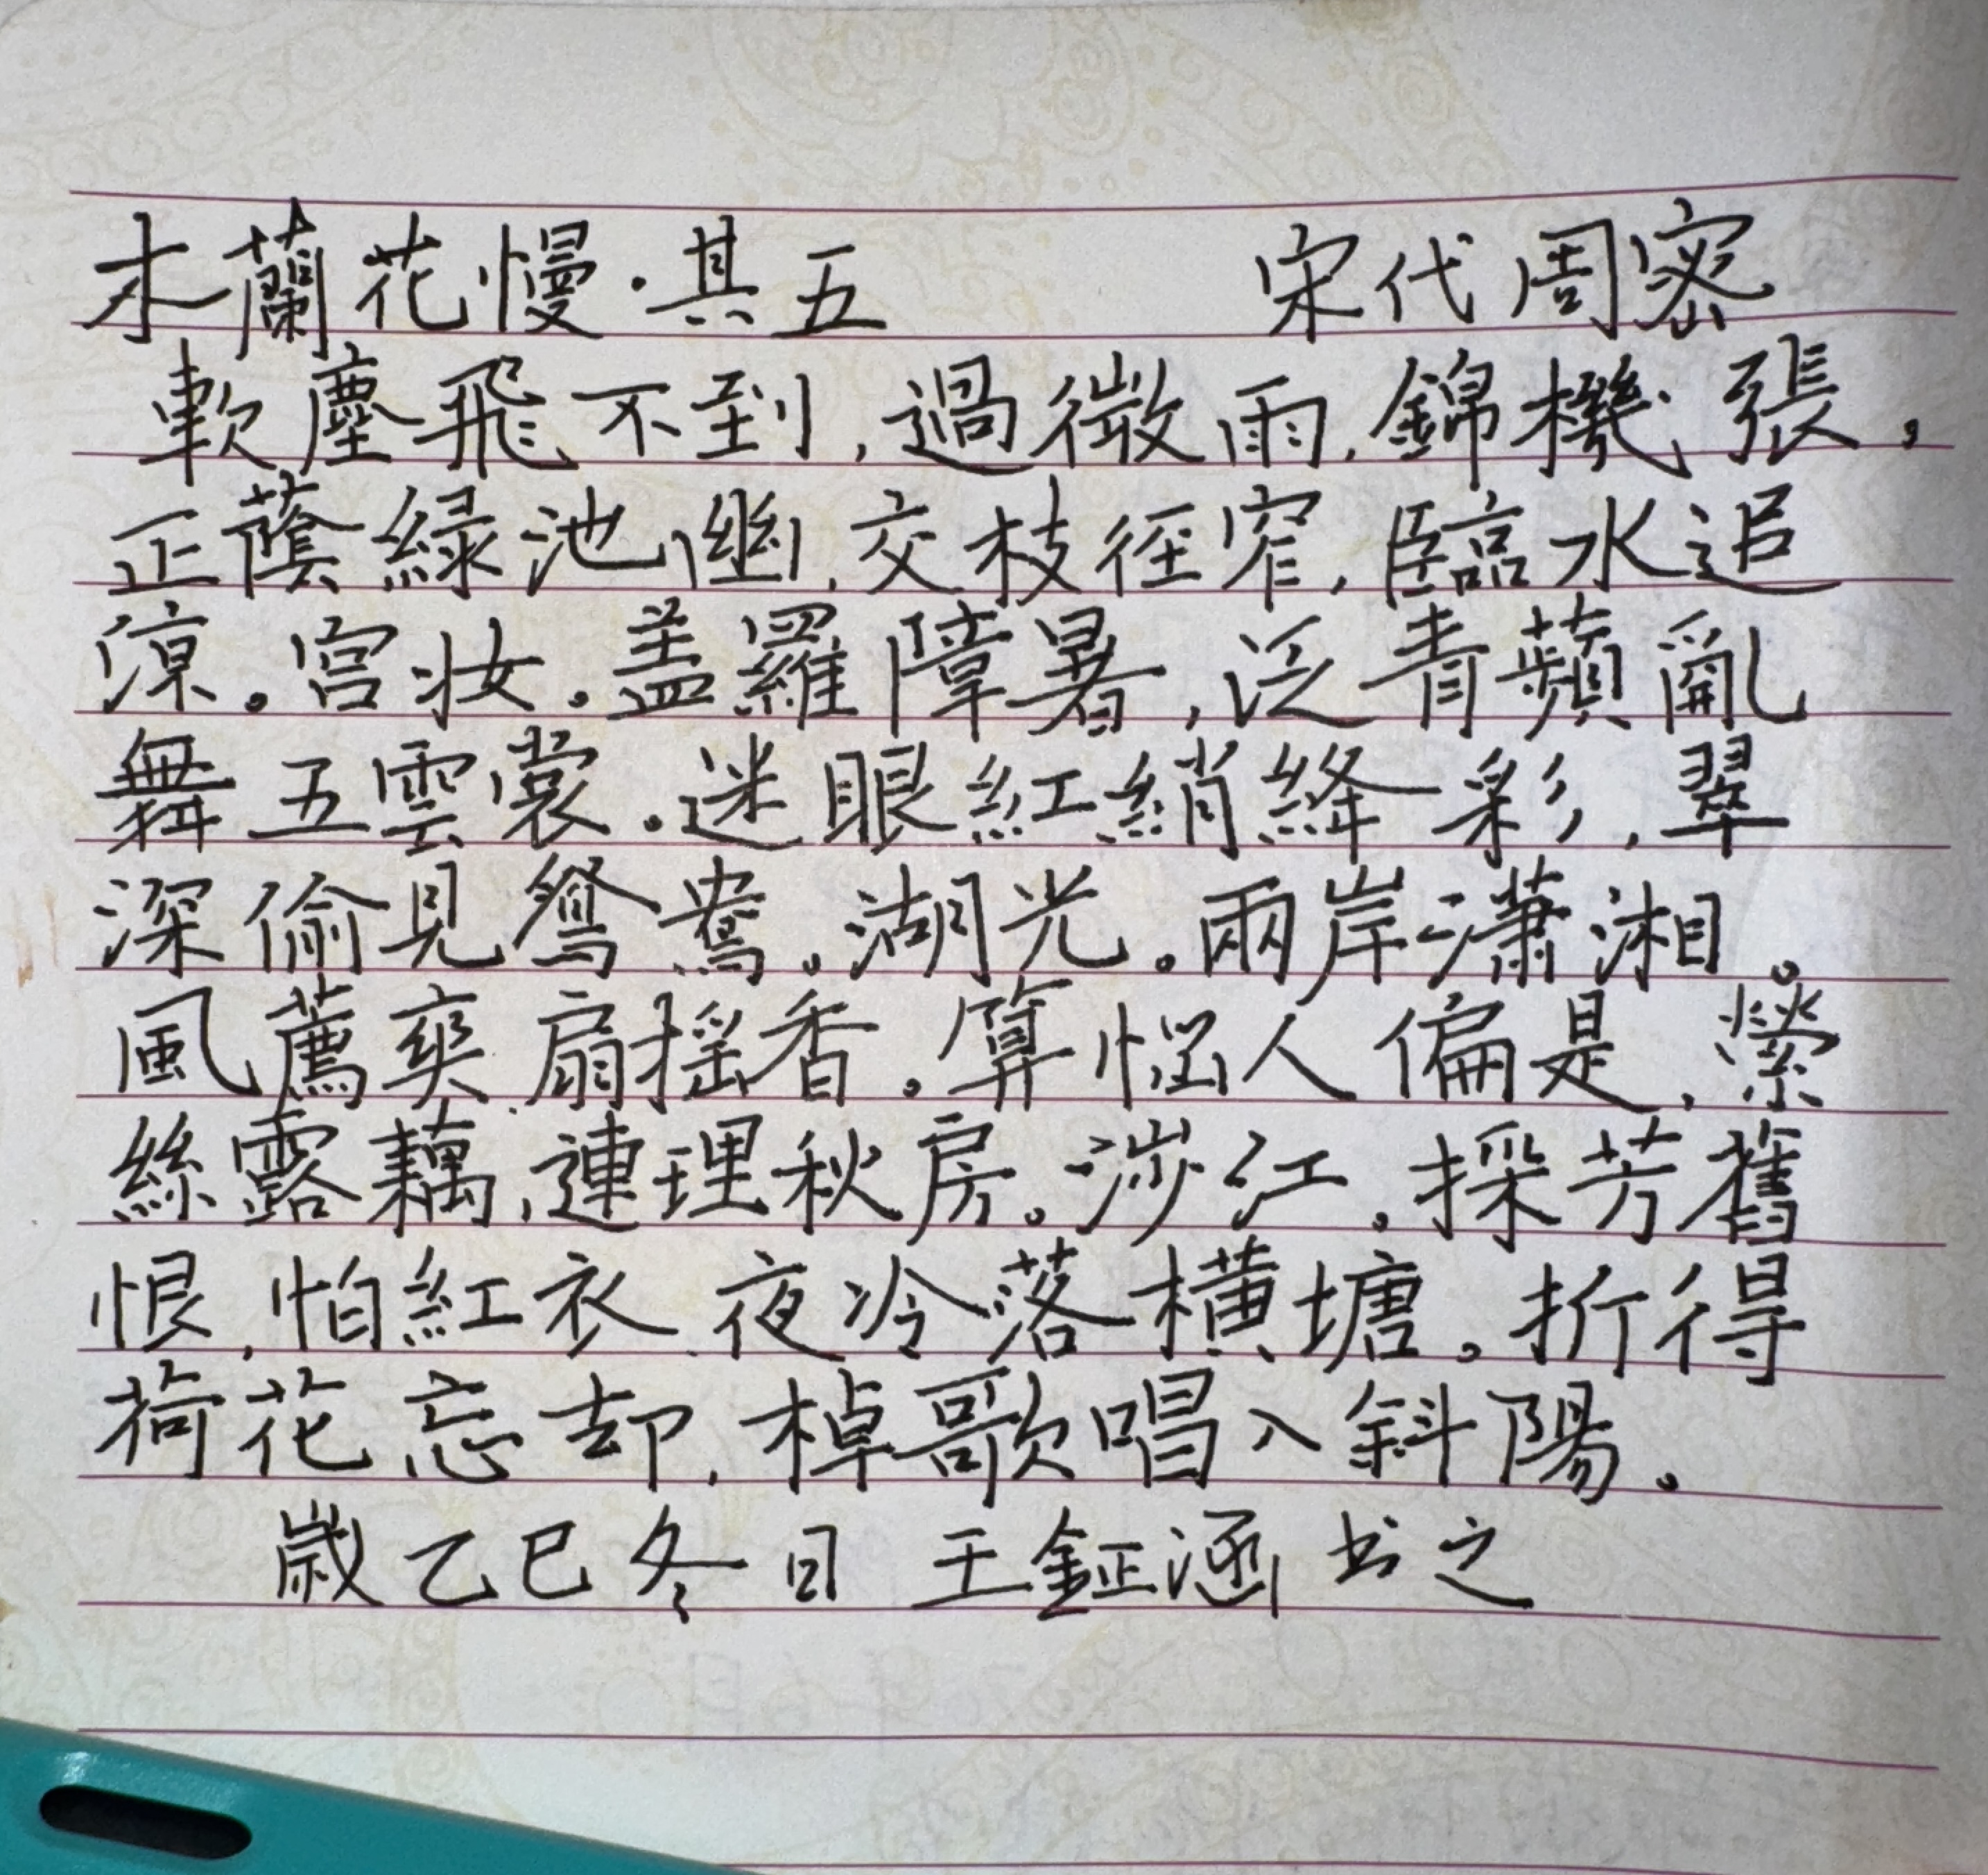 木蘭花慢·其五 宋代周密
軟塵飛不到,過微雨,錦機張,
正蔭綠池幽,交枝徑窄,臨水追
涼。宮妝。蓋羅障暑,泛青蘋亂
舞五雲裳。迷眼紅綃絳彩,翠
深偷見鴛鴦。湖光。兩岸瀟湘。
風薦爽,扇搖香。算惱人偏是,縈
絲露藕,連理秋房。涉江。採芳舊
恨,怕紅衣、夜冷落橫塘。折得
荷花忘却,棹歌唱入斜陽。
歲乙巳冬日 王鉦涵书之